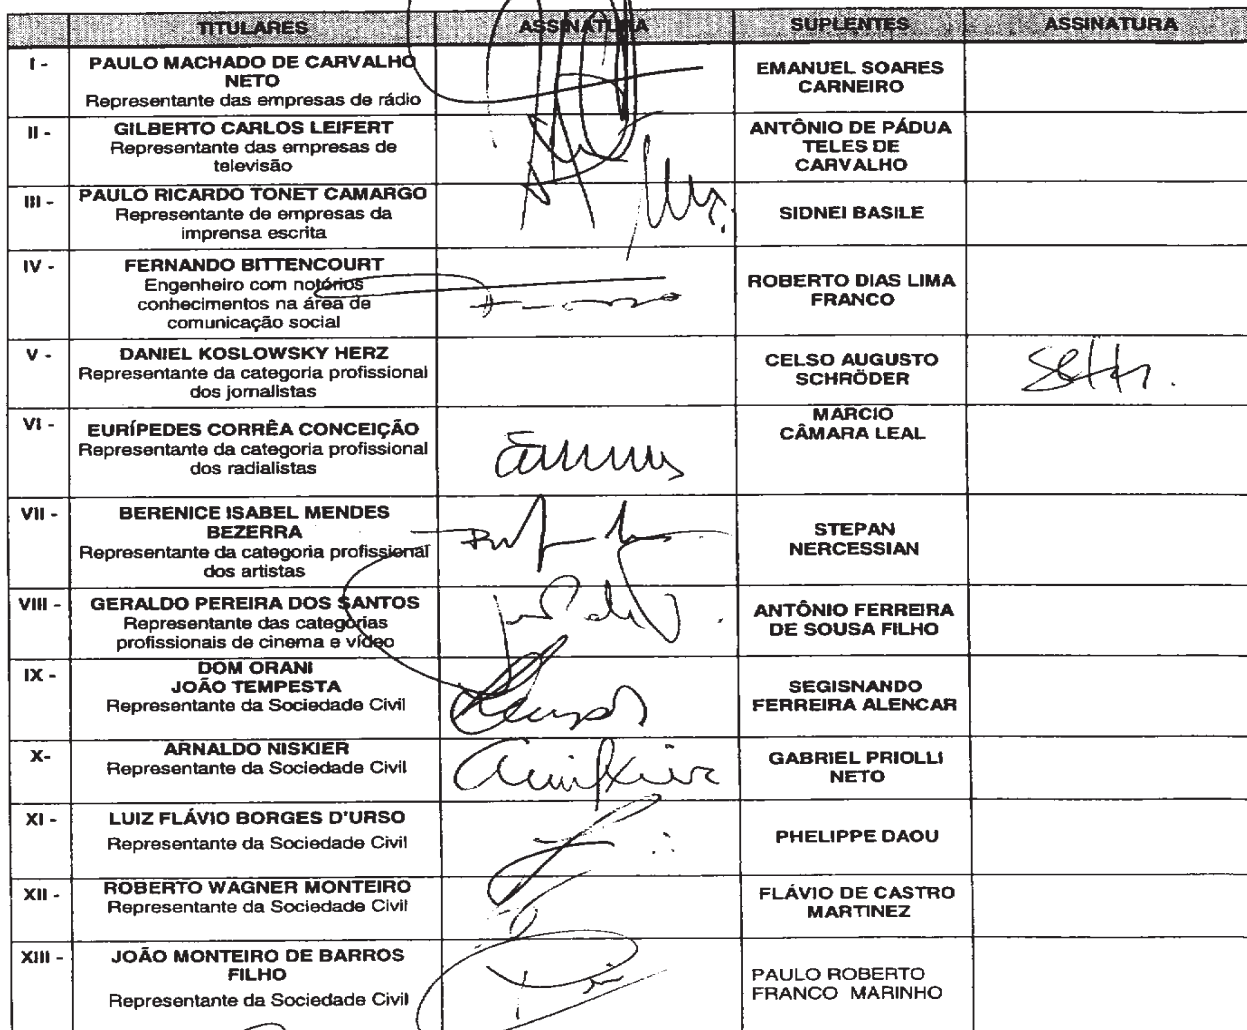 TITULARES ASSINATURA SUPLENTES ASSINATURA
I - PAULO MACHADO DE CARVALHO
NETO
Representante das empresas de rádio
EMANUEL SOARES
CARNEIRO
II - GILBERTO CARLOS LEIFERT
Representante das empresas de
televisão
ANTÔNIO DE PÁDUA
TELES DE
CARVALHO
III - PAULO RICARDO TONET CAMARGO
Representante de empresas da
imprensa escrita
SIDNEI BASILE
IV - FERNANDO BITTENCOURT
Engenheiro com notórios
conhecimentos na área de
comunicação social
ROBERTO DIAS LIMA
FRANCO
V - DANIEL KOSLOWSKY HERZ
Representante da categoria profissional
dos jornalistas
CELSO AUGUSTO
SCHRÖDER
VI - EURÍPEDES CORRÊA CONCEIÇÃO
Representante da categoria profissional
dos radialistas
MARCIO
CÂMARA LEAL
VII - BERENICE ISABEL MENDES
BEZERRA
Representante da categoria profissional
dos artistas
STEPAN
NERCESSIAN
VIII - GERALDO PEREIRA DOS SANTOS
Representante das categorias
profissionais de cinema e vídeo
ANTÔNIO FERREIRA
DE SOUSA FILHO
IX - DOM ORANI
JOÃO TEMPESTA
Representante da Sociedade Civil
SEGISNANDO
FERREIRA ALENCAR
X- ARNALDO NISKIER
Representante da Sociedade Civil
GABRIEL PRIOLLI
NETO
XI - LUIZ FLÁVIO BORGES D'URSO
Representante da Sociedade Civil
PHELIPPE DAOU
XII - ROBERTO WAGNER MONTEIRO
Representante da Sociedade Civil
FLÁVIO DE CASTRO
MARTINEZ
XIII - JOÃO MONTEIRO DE BARROS
FILHO
Representante da Sociedade Civil
PAULO ROBERTO
FRANCO MARINHO